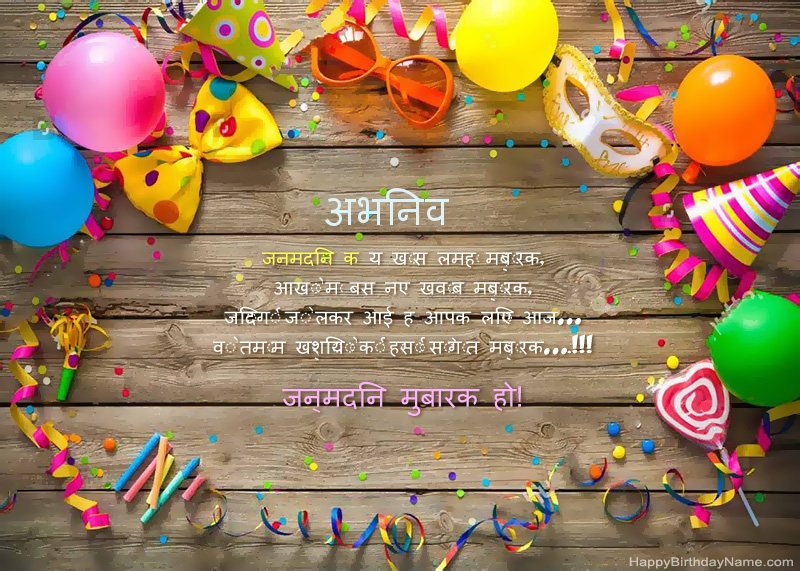 अभनिव
जनमदनि क य खास लमह मबारक,
आखो म बस नए खवाब मबारक,
जदिगी जो लकर आई ह आपक लएि आज...
वो तमाम खशयिो की हसी सौगात मबारक...!!!
जन्मदनि मुबारक हो!
HappyBirthdayName.com